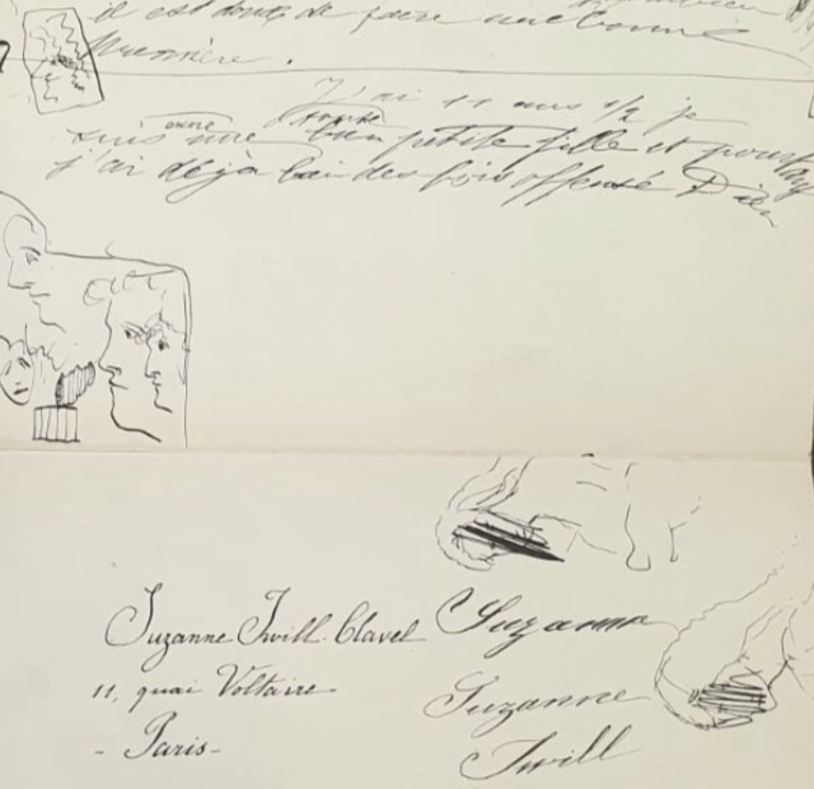 il est doux de faire une bonne
J'ai 11 ans 1/2 je
suis encore une toute bien petite fille et pourtant
j'ai déjà bien des fois offensé Dieu
Suzanne Twill-Clavel Suzanne
11, quai Voltaire
Suzanne
- Paris -
Twill